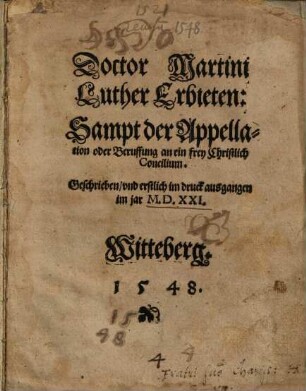 1548
Doctor Martini
Luther Erbieten:
Sampt der Appella-
tion oder Beruffung an ein frey Christlich
Concilium.
Geschrieben/vnd erstlich im druck ausgangen
im jar M.D.XXI.
Witteberg.
1548.
15
48
4 8